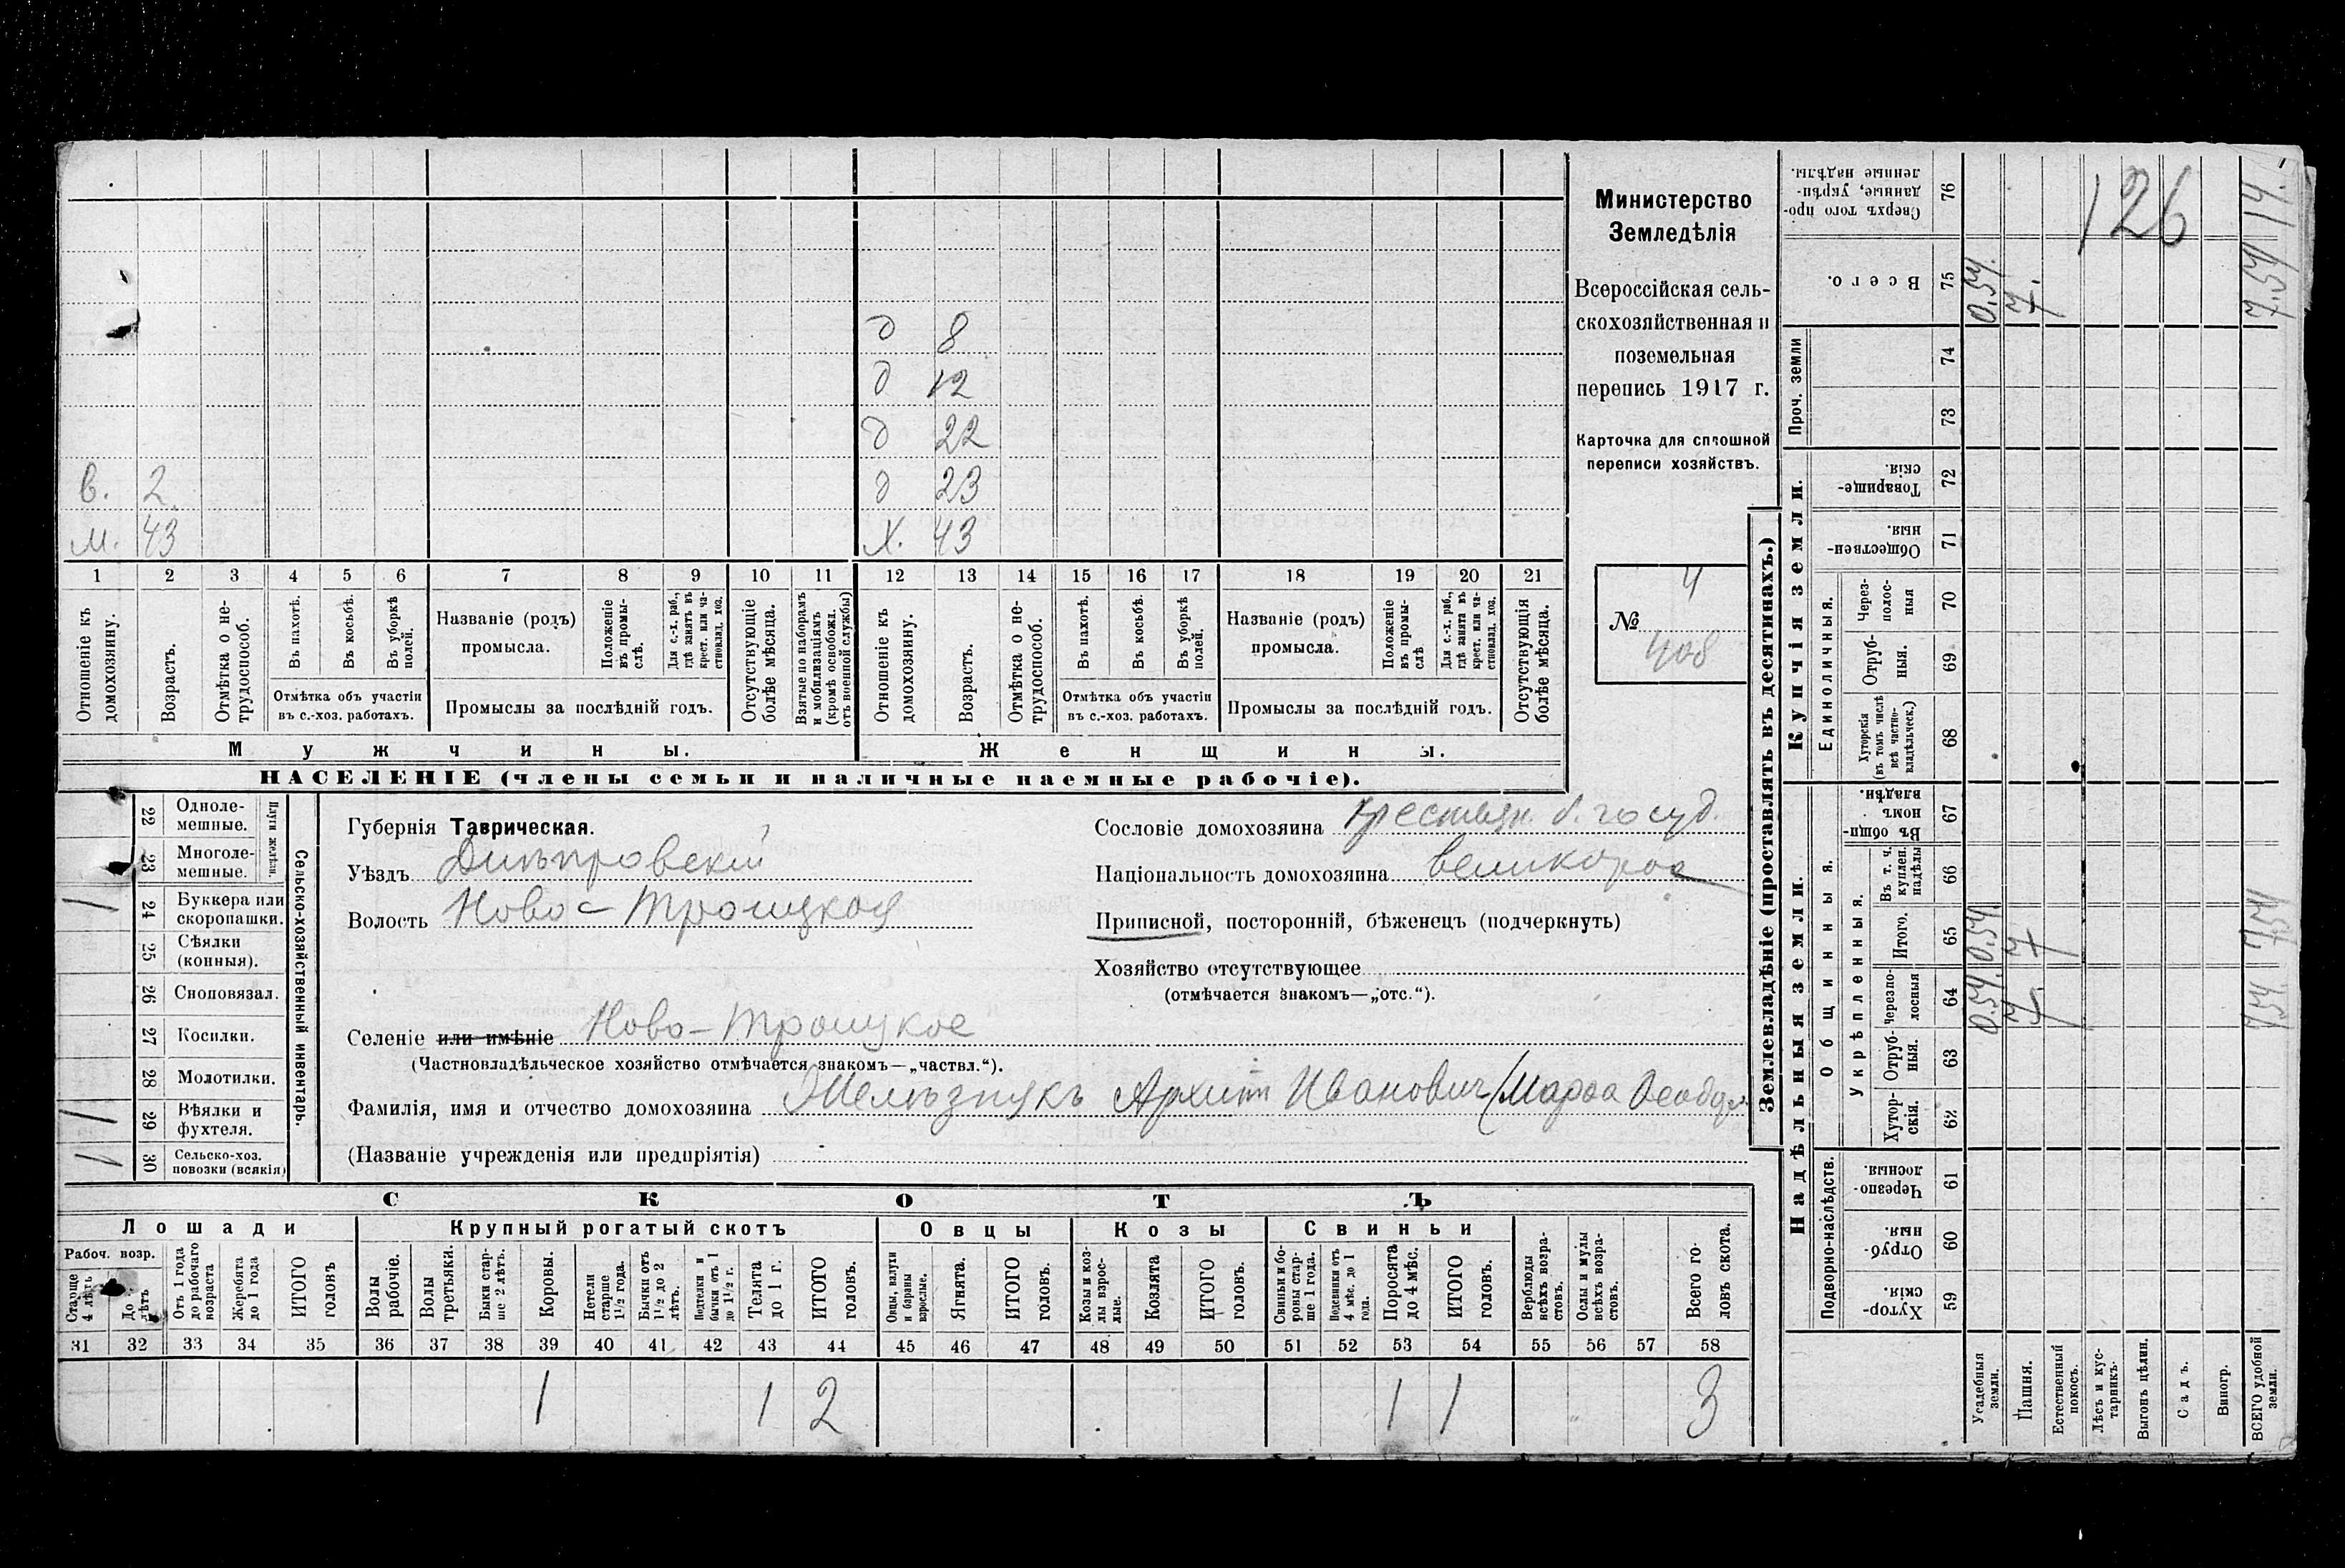 Министерство
Земледѣлія
Всероссійская сель-
скохозяйственная и
поземельная
перепись 1917 г.
Карточка для сплошной
переписи хозяйствъ.
№ 4
408
д 8
д 12
д 22
в. 2 д 23
м. 43 Х. 43
1 2 3 4 5 6 7 8 9 10 11 12 13 14 15 16 17 18 19 20 21
Отношеніе къ домохозяину.
Возрастъ.
Отмѣтка о не-трудоспособ.
Въ пахотѣ.
Въ косьбѣ.
Въ уборкѣ полей.
Отмѣтка объ участіи
въ с.-хоз. работахъ.
Названіе (родъ)
промысла.
Положеніе въ промы-слѣ.
Для с.-х. раб., гдѣ занятъ въ крест. или ча-стновлад. хоз.
Промыслы за послѣдній годъ.
Отсутствующіе болѣе мѣсяца.
Взятые по наборамъ и мобилизаціямъ (кромѣ освобожд. отъ военной службы)
Отношеніе къ домохозяину.
Возрастъ.
Отмѣтка о не-трудоспособ.
Въ пахотѣ.
Въ косьбѣ.
Въ уборкѣ полей.
Отмѣтка объ участіи
въ с.-хоз. работахъ.
Названіе (родъ)
промысла.
Положеніе въ промы-слѣ
Для с.-х. раб., гдѣ занята въ крест. или ча-стновлад. хоз.
Промыслы за послѣдній годъ.
Отсутствующія болѣе мѣсяца.
Мужчины. Женщины.
НАСЕЛЕНІЕ (члены семьи и наличные наемные рабочіе).
Сельско-хозяйственный инвентарь.
Плуги желѣзн.
22 Одноле-мешные.
23 Многоле-мешные.
1 24 Буккера или скоропашки.
25 Сѣялки (конныя).
26 Сноповязал.
27 Косилки.
28 Молотилки.
1 29 Вѣялки и фухтеля.
1 30 Сельско-хоз. повозки (всякія)
Губернія Таврическая.
Уѣздъ Днѣпровскій
Волость Ново-Троицкая
Сословіе домохозяина крестьян. б. госуд.
Національность домохозяина великорос
Приписной, посторонній, бѣженецъ (подчеркнуть)
Хозяйство отсутствующее
(отмѣчается знакомъ—„отс.“).
Селеніе или имѣніе Ново-Троицкое
(Частновладѣльческое хозяйство отмѣчается знакомъ—„частвл.“).
Фамилія, имя и отчество домохозяина Желѣзнякъ Архип Иванович (Марфа
(Названіе учрежденія или предпріятія)
СКОТЪ
Лошади Крупный рогатый скотъ Овцы Козы Свиньи
Рабоч. возр.
Старше 4 лѣтъ
До лѣтъ
Отъ 1 года до рабочаго возраста
Жеребята до 1 года
ИТОГО головъ
Волы рабочіе.
Волы третьяки.
Быки стар-ше 2 лѣтъ.
Коровы.
Нетели старше 1½ года.
Бычки отъ 1½ до 2 лѣтъ.
Подтелки и бычки отъ 1 до 1½ г.
Телята до 1 г.
ИТОГО головъ.
Овцы, валухи и бараны взрослые.
Ягнята.
ИТОГО головъ.
Козы и коз-лы взрос-лые.
Козлята
ИТОГО головъ.
Свиньи и бо-ровы стар-ше 1 года.
Подсвинки отъ 4 мѣс. до 1 года.
Поросята до 4 мѣс.
ИТОГО головъ.
Верблюды всѣхъ возра-стовъ.
Ослы и мулы всѣхъ возра-стовъ.
Всего го-ловъ скота.
31 32 33 34 35 36 37 38 39 40 41 42 43 44 45 46 47 48 49 50 51 52 53 54 55 56 57 58
1 1 2 1 1 3
Землевладѣніе (проставлять въ десятинахъ.)
Надѣльныя земли. Купчія земли.
Проч. земли
Подворно-наслѣдств.
Общинныя.
Укрѣпленныя.
Единоличныя.
Сверхъ того про-данные, укрѣп-ленные надѣлы. 76
Всего. 75 0.54. 7. 7.54
74
73
Товарище-скія. 72
Обществен-ныя. 71
Через-полос-ныя 70
Отруб-ныя. 69
Хуторскія (въ томъ числѣ всѣ частно-владѣльческ.) 68
Въ общи-номъ владѣн. 67
Въ т. ч. куплен. надѣлы 66
Итого. 65 0.54 7 7.54
Черезпо-лосныя 64 0.54. 7 7.54.
Отруб-ныя. 63
Хутор-скія. 62
Черезпо-лосныя. 61
Отруб-ныя. 60
Хутор-скія. 59
126
Усадебныя земли.
Пашня.
Естественный покосъ.
Лѣсъ и кус-тарникъ.
Выгонъ цѣлин.
Садъ.
Виногр.
ВСЕГО удобной земли.